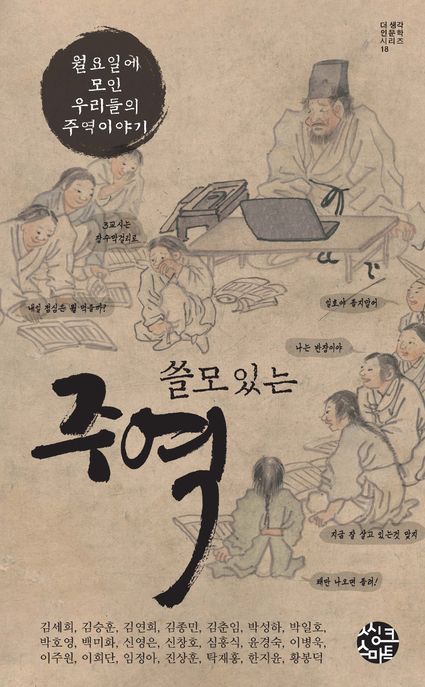 더생각
인문학
시리즈
18
월요일에
모인
우리들의
주역이야기
3교시는
장수막걸리로
내일 점심은 뭘 먹을까?
일호야 울지말어
나는 반장이야
쓸모 있는
주역
지금 잘 살고 있는것 맞지
패만 나오면 돌려!
김세희, 김승훈, 김연희, 김종민, 김춘임, 박성하, 박일호,
박호영, 백미화, 신영은, 신창호, 심홍식, 윤경숙, 이병욱,
이주원, 이희단, 임정아, 진상훈, 탁재홍, 한지윤, 황봉덕
씽크
스마트